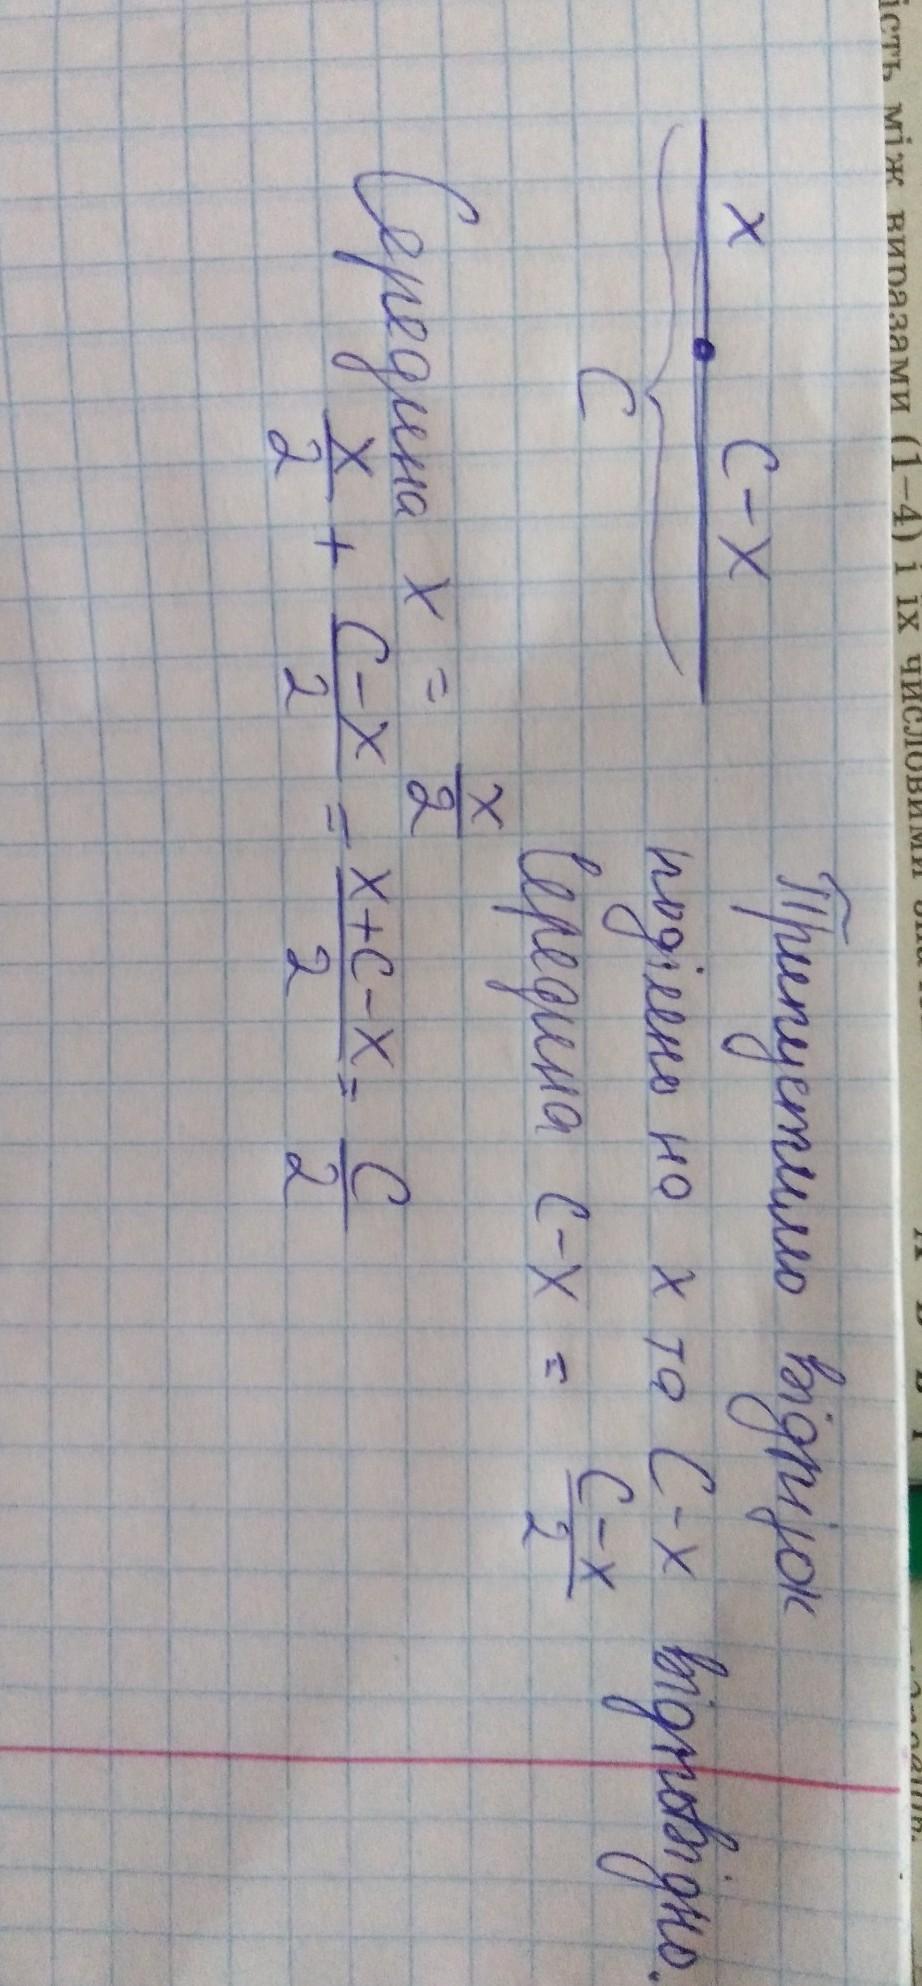 ість між виразами (1–4) і їх числовими
x C-x
C
Припустимо відрізок
поділено на x то C-x відповідно.
Середина C-x = C-x/2
Середина x = x/2
x/2 + C-x/2 = x+C-x/2 = C/2